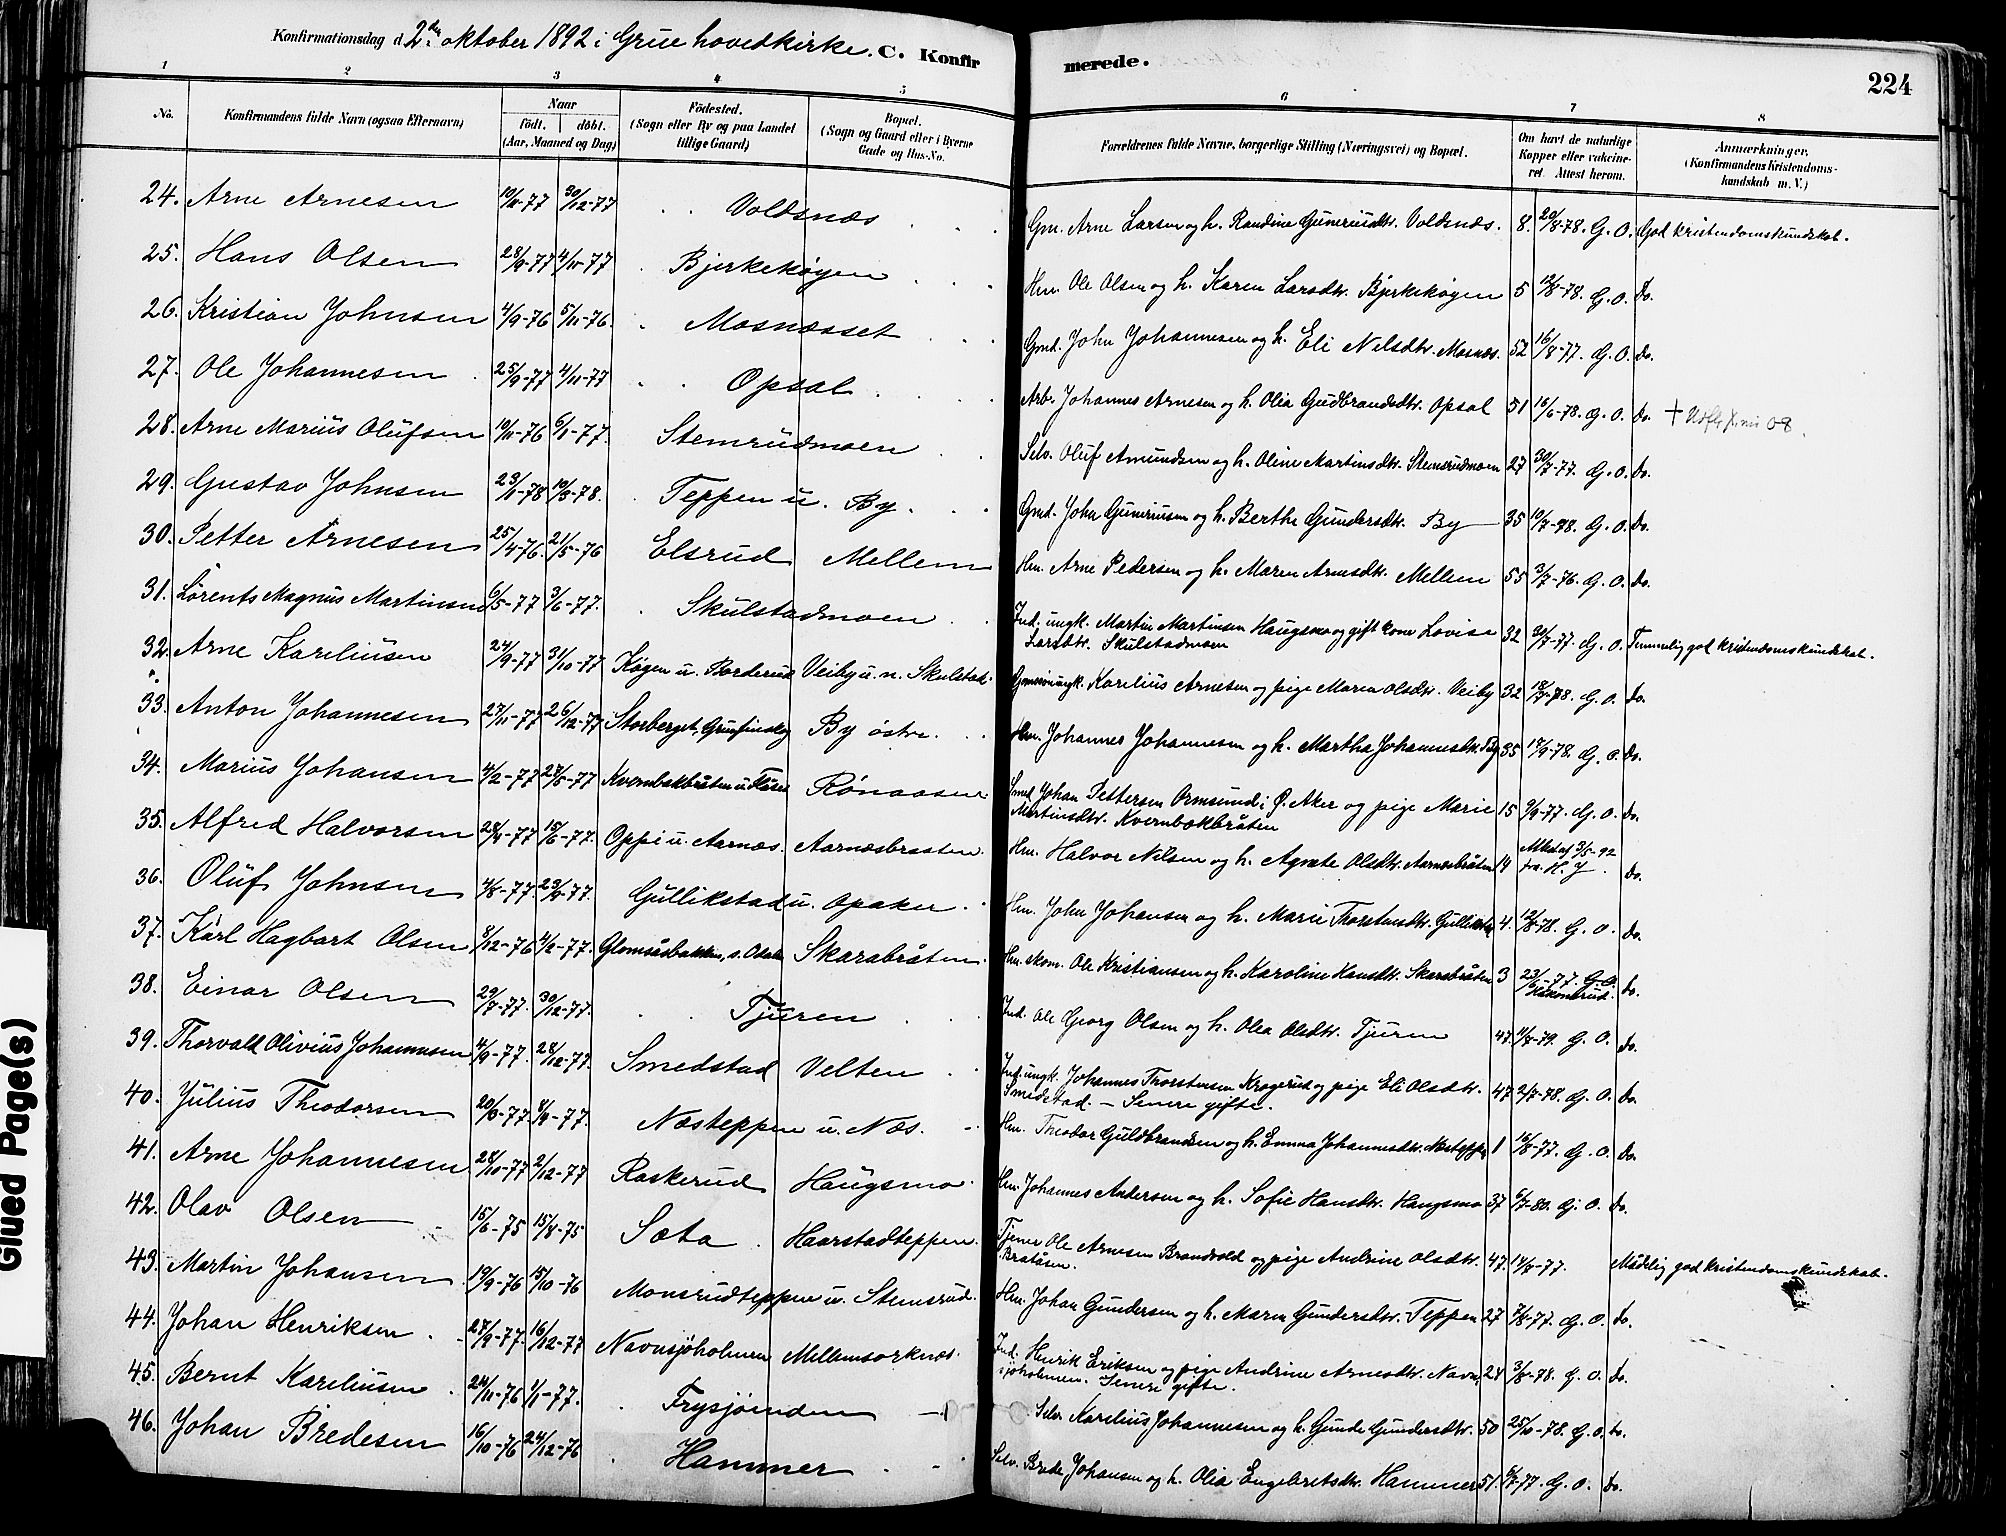 Konfirmationsdag d. 2den oktober 1892 i Grue hovedkirke. C. Konfirmerede.
224
1 2 3 4 5 6 7 8
No. Konfirmandens fulde Navn (ogsaa Efternavn) Naar født. døbt. (Aar, Maaned og Dag) Fødested. (Sogn eller By og paa Landet tillige Gaard) Bopæl. (Sogn og Gaard eller i Byerne Gade og Hus-No. Forældrenes fulde Navne, borgerlige Stilling (Næringsvei) og Bopæl. Om havt de naturlige Kopper eller vakcineret. Attest herom. Anmærkninger. (Konfirmandens Kristendomskundskab m. V.)
24. Arne Arnesen 10/11-77 30/12-77 Voldsnæs Gm. Arne Larsen og h. Randine Guneriusdtr. Voldsnæs. 8. 20/8-78. G. O. God kristendomskundskab.
25. Hans Olsen 28/9-77 4/11-77 Bjerkekøgen Hm. Ole Olsen og h. Karen Larsdtr. Bjerkekøgen 5 12/8-78. G. O. Do.
26. Kristian Johnsen 4/9-76 5/11-76. Mosnæsset Gmd. John Johannesen og h. Eli Nilsdtr. Mosnæs. 52 16/8-77. G. O. Do.
27. Ole Johannesen 25/9-77 4/11-77 Opsal Arb. Johannes Arnesen og h. Olia Gudbrandsdtr. Opsal 51 16/6-78. G. O. Do. + 08.
28. Arne Marius Olufsen 10/11-76 6/1-77. Stemrudmoen Selv. Oluf Amundsen og h. Oline Martinsdtr. Stemsrudmoen 27 30/7-77. G. O. Do.
29. Gustav Johnsen 23/1-78 10/3-78. Teppen u. By. Gmd. John Guneriusen og h. Berthe Gundersdtr. By 35 10/7-78. G. O. Do.
30. Petter Arnesen 25/4-76. 21/5-76 Elsrud Mellem Hm. Arne Pedersen og h. Maren Arnesdtr. Mellem 55 3/7-76. G. O. Do.
31. Lørents Magnus Martinsen 6/5-77 3/6-77. Skulstadmoen Ind. ungk. Martin Martinsen Haugsmo og gift kone Lovise Larsdtr. Skulstadmoen 32 30/7-77. G. O. Temmelig god kristendomskundskab.
32. Arne Kareliusen 24/9-77 31/10-77 Køgen u. Borderud Veiby u. n. Skulstad. ungk. Karelius Arnesen og pige Maren Olsdtr. Veiby 32 18/7-78. G. O. Do.
33. Anton Johannesen 27/11-77 26/12-77 Storberget, Gruefinskog By østre. Hm. Johannes Johannesen og h. Martha Johannesdtr. By 35 17/9-78. G. O. Do.
34. Marius Johansen 4/2-77 27/5-77 Kvernbakbråten u. Flisen Rønaasen Smed Johan Pettersen Ormsund i Ø. Aker og pige Marie Martinsdtr. Kvernbækbråten 15 9/9-77. G. O. Do.
35. Alfred Halvorsen 28/4-77 10/6-77. Oppi u. Aarnæs. Aarnæsbraaten. Hm. Halvor Nilsen og h. Agnete Olsdtr. Aarnæsbråten 14 Attest af 3/5-92 fra H. J. Do.
36. Oluf Johnsen 4/8-77. 23/9-77. Gullikstad u. Opaker. Hm. John Johansen og h. Marie Thorstensdtr. Gullikstad 4. 12/8-78. G. O. Do.
37. Karl Hagbart Olsen 8/12-76 4/2-77. Glomsåsbakken, s. Odalen Skarabråten Hm. skom. Ole Kristiansen og h. Karoline Hansdtr. Skarabråten 3 23/6-77. G. O. Håkonsrud. Do.
38. Einar Olsen 29/7-77. 30/12-77. Tjuren Ind. Ole Georg Olsen og h. Olea Olsdtr. Tjuren 47. 11/8-79. G. O. Do.
39. Thorvald Olivius Johannesen 4/9-77. 28/12-77. Smedstad Velten Ind. ungk. Johannes Thorstensen Krogerud og pige Eli Olsdtr. Smedstad. – Senere gifte. 47 2/7-78. G. O. Do.
40. Julius Theodorsen 20/3-77. 8/4-77. Næsteppen u. Næs. Hm. Theodor Guldbrandsen og h. Emma Johannesdtr. Næsteppen 1 16/8-77. G. O. Do.
41. Arne Johannesen 28/10-77 2/12-77 Raskerud Haugsmo. Hm. Johannes Andersen og h. Sofie Hansdtr. Haugsmo 37 6/7-80. G. O. Do.
42. Olav Olsen 15/6-75 15/8-75 Sæta Haarstadteppen. Tjener Ole Arnesen Brandvold og pige Andrine Olsdtr. Bratåsen. 47. 14/8-77. Mådelig god kristendomskundskab.
43. Martin Johansen 19/9-76 15/10-76 Monsrudteppen u. Stemsrud. Hm. Johan Gundersen og h. Maren Gundersdtr. Teppen 27 7/8-77. G. O. Do.
44. Johan Henriksen 27/9-77. 16/12-77 Navnsjøholmen Mellemsorknæs. Ind. Henrik Eriksen og pige Andrine Arnesdtr. Navnsjøholmen. Senere gifte. 24 3/8-78. G. O. Do.
45. Bernt Kareliusen 24/11-76 1/1-77. Frysjøenden Selv. Karelius Johannesen og h. Gunde Gundersdtr. 50 25/10-78. G. O. Do.
46. Johan Bredesen 16/10-76 24/12-76 Hammer Selv. Brede Johansen og h. Olia Engebretsdtr. Hammer 51. 6/7-77. G. O. Do.
Glued Page(s)